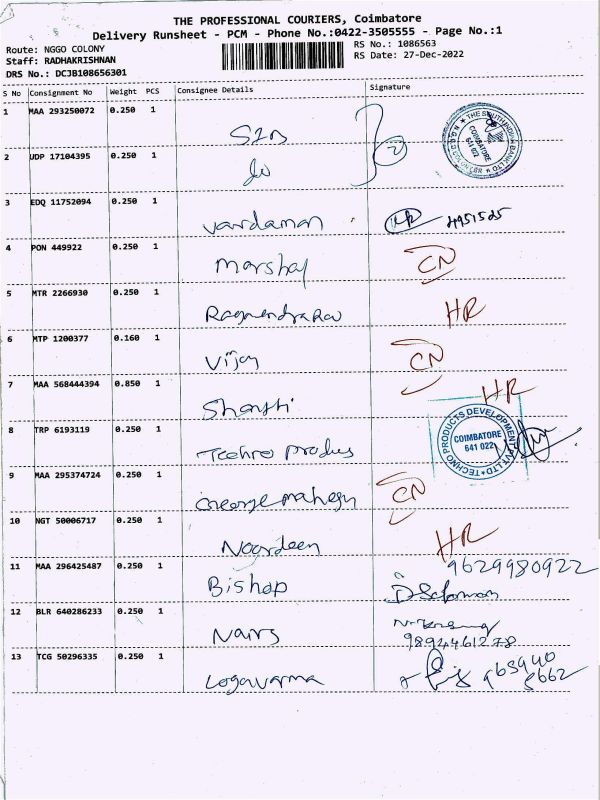 THE PROFESSIONAL COURIERS, Coimbatore
Delivery Runsheet - PCM - Phone No.:0422-3505555 - Page No.:1
Route: NGGO COLONY RS No.: 1086563
Staff: RADHAKRISHNAN RS Date: 27-Dec-2022
DRS No.: DCJB108656301
S No Consignment No Weight PCS Consignee Details Signature
1 MAA 293250072 0.250 1 SIB
2 UDP 17104395 0.250 1 2
THE SOUTH INDIAN BANK LTD COIMBATORE 641 022
3 EDQ 11752094 0.250 1 Vardaman
4 PON 449922 0.250 1 Marshal CN
5 MTR 2266930 0.250 1 HR
6 MTP 1200377 0.160 1 Vijay CN
7 MAA 568444394 0.850 1 Shanthi HR
8 TRP 6193119 0.250 1 Techno
TECHNO PRODUCTS DEVELOPMENT PVT LTD COIMBATORE 641 022
9 MAA 295374724 0.250 1 CN
10 NGT 50006717 0.250 1 Noordeen HR
11 MAA 296425487 0.250 1 Bishop 9629980922
D Solomon
12 BLR 640286233 0.250 1 Nairs
9894461278
13 TCG 50296335 0.250 1 Logavarma